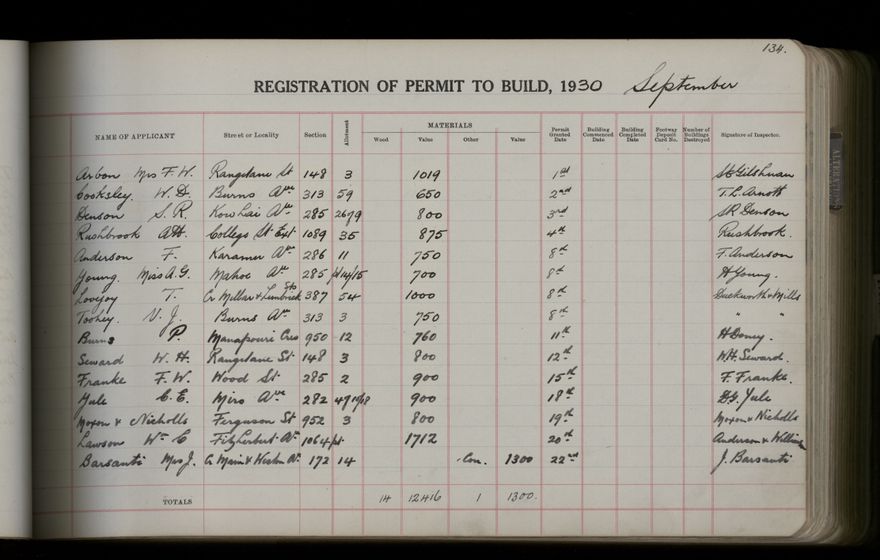 134.
REGISTRATION OF PERMIT TO BUILD, 1930 September
NAME OF APPLICANT Street or Locality Section Allotment MATERIALS Wood Value Other Value Permit Granted Date Building Commenced Date Building Completed Date Footway Deposit Card No. Number of Buildings Destroyed Signature of Inspector.
Arbon Mrs F. W. Rangitane St 148 3 1019 1st
Cooksley. W. D. Burns Ave 313 59 650 2nd T. L. Arnott
Denson S. R. Kowhai Ave 285 26 800 3rd S R Denson
Rushbrook College St Ext 1089 35 875 4th Rushbrook.
Anderson F. Karamu Ave 286 11 750 8th F. Anderson
Young. Miss A. G. Mahoe Ave 285 700 8th H Young.
Lovejoy T. Cr Millar & Limbrick Sts 387 54 1000 8th Duckworth & Mills
Toohey. V. J. Burns Ave 313 3 750 8th " "
Burns P. Manapouri Cres 950 12 760 11th
Seward W. H. Rangitane St 148 3 800 12th W.H. Seward.
Franke F. W. Wood St 285 2 900 15th F. Franke.
Yule C. E. Miro Ave 282 900 18th Yule
Moxon & Nicholls Ferguson St 952 3 800 19th Moxon & Nicholls
Lawson Wm C Fitzherbert Av 1064 pt 1712 20th Anderson &
Barsanti Mrs J. Cr Main & 172 14 Con. 1300 22nd J. Barsanti
TOTALS 14 12416 1 1300.